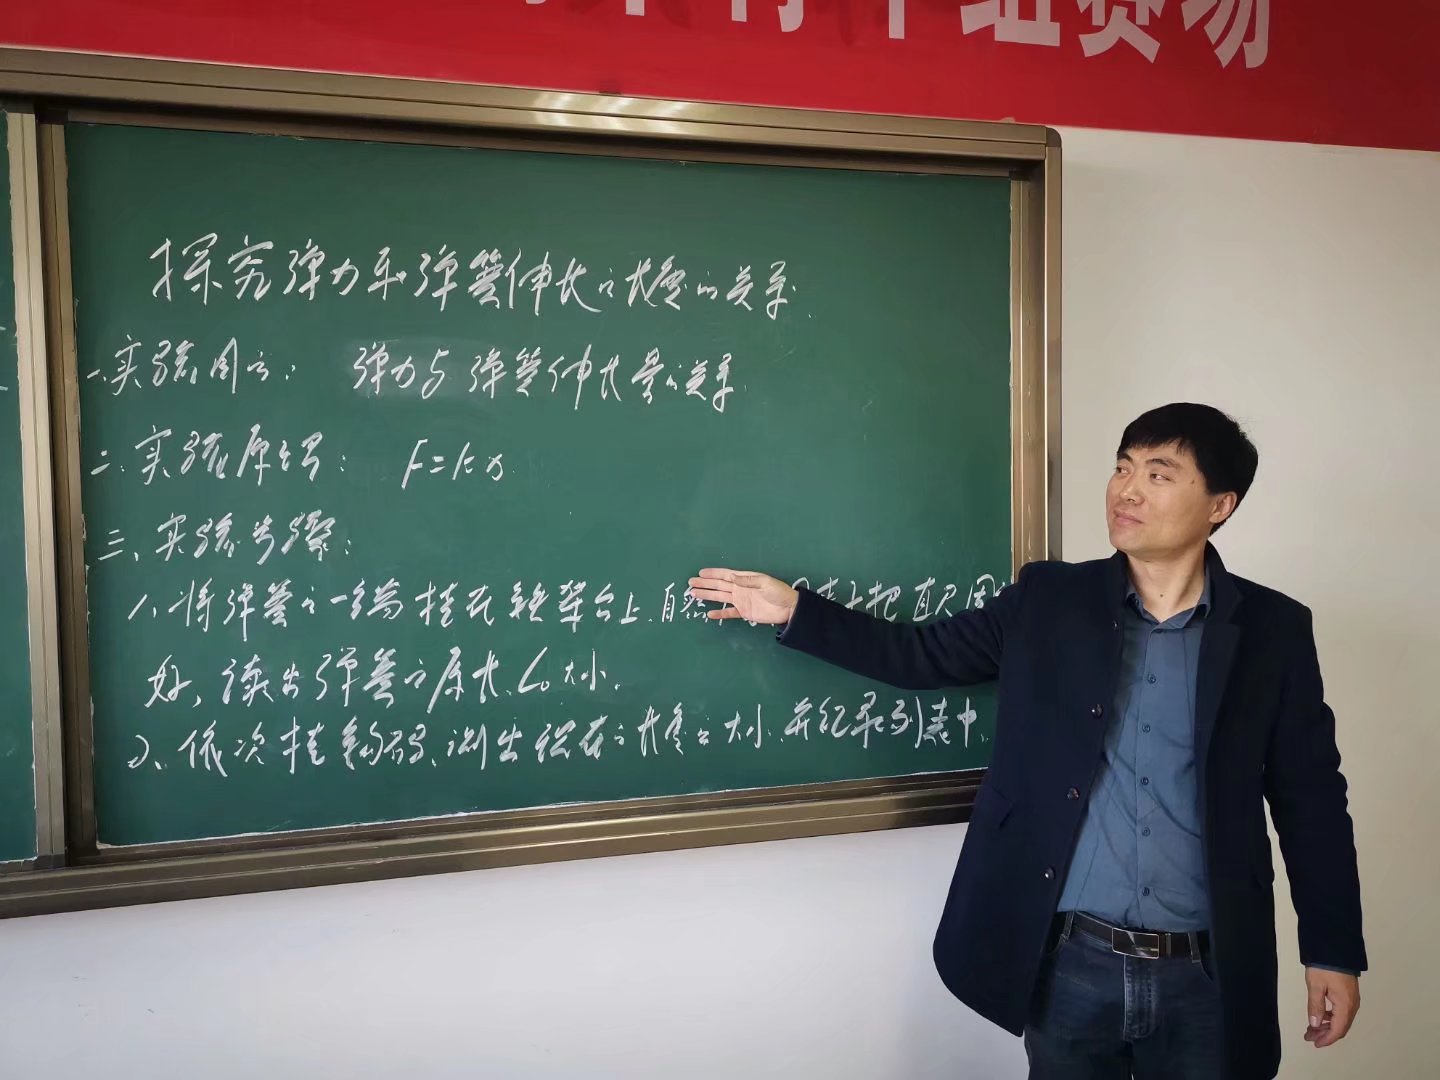 中组赛场
探究弹力和弹簧伸长之长度的关系.
一、实验目的: 弹力与弹簧伸长量的关系.
二、实验原理: F=kx.
三、实验步骤:
1、将弹簧之一端挂在铁架台上、自然 把直尺固
好,读出弹簧之原长L₀大小.
2、依次挂钩码、测出现在之长度之大小、并纪录到表中、